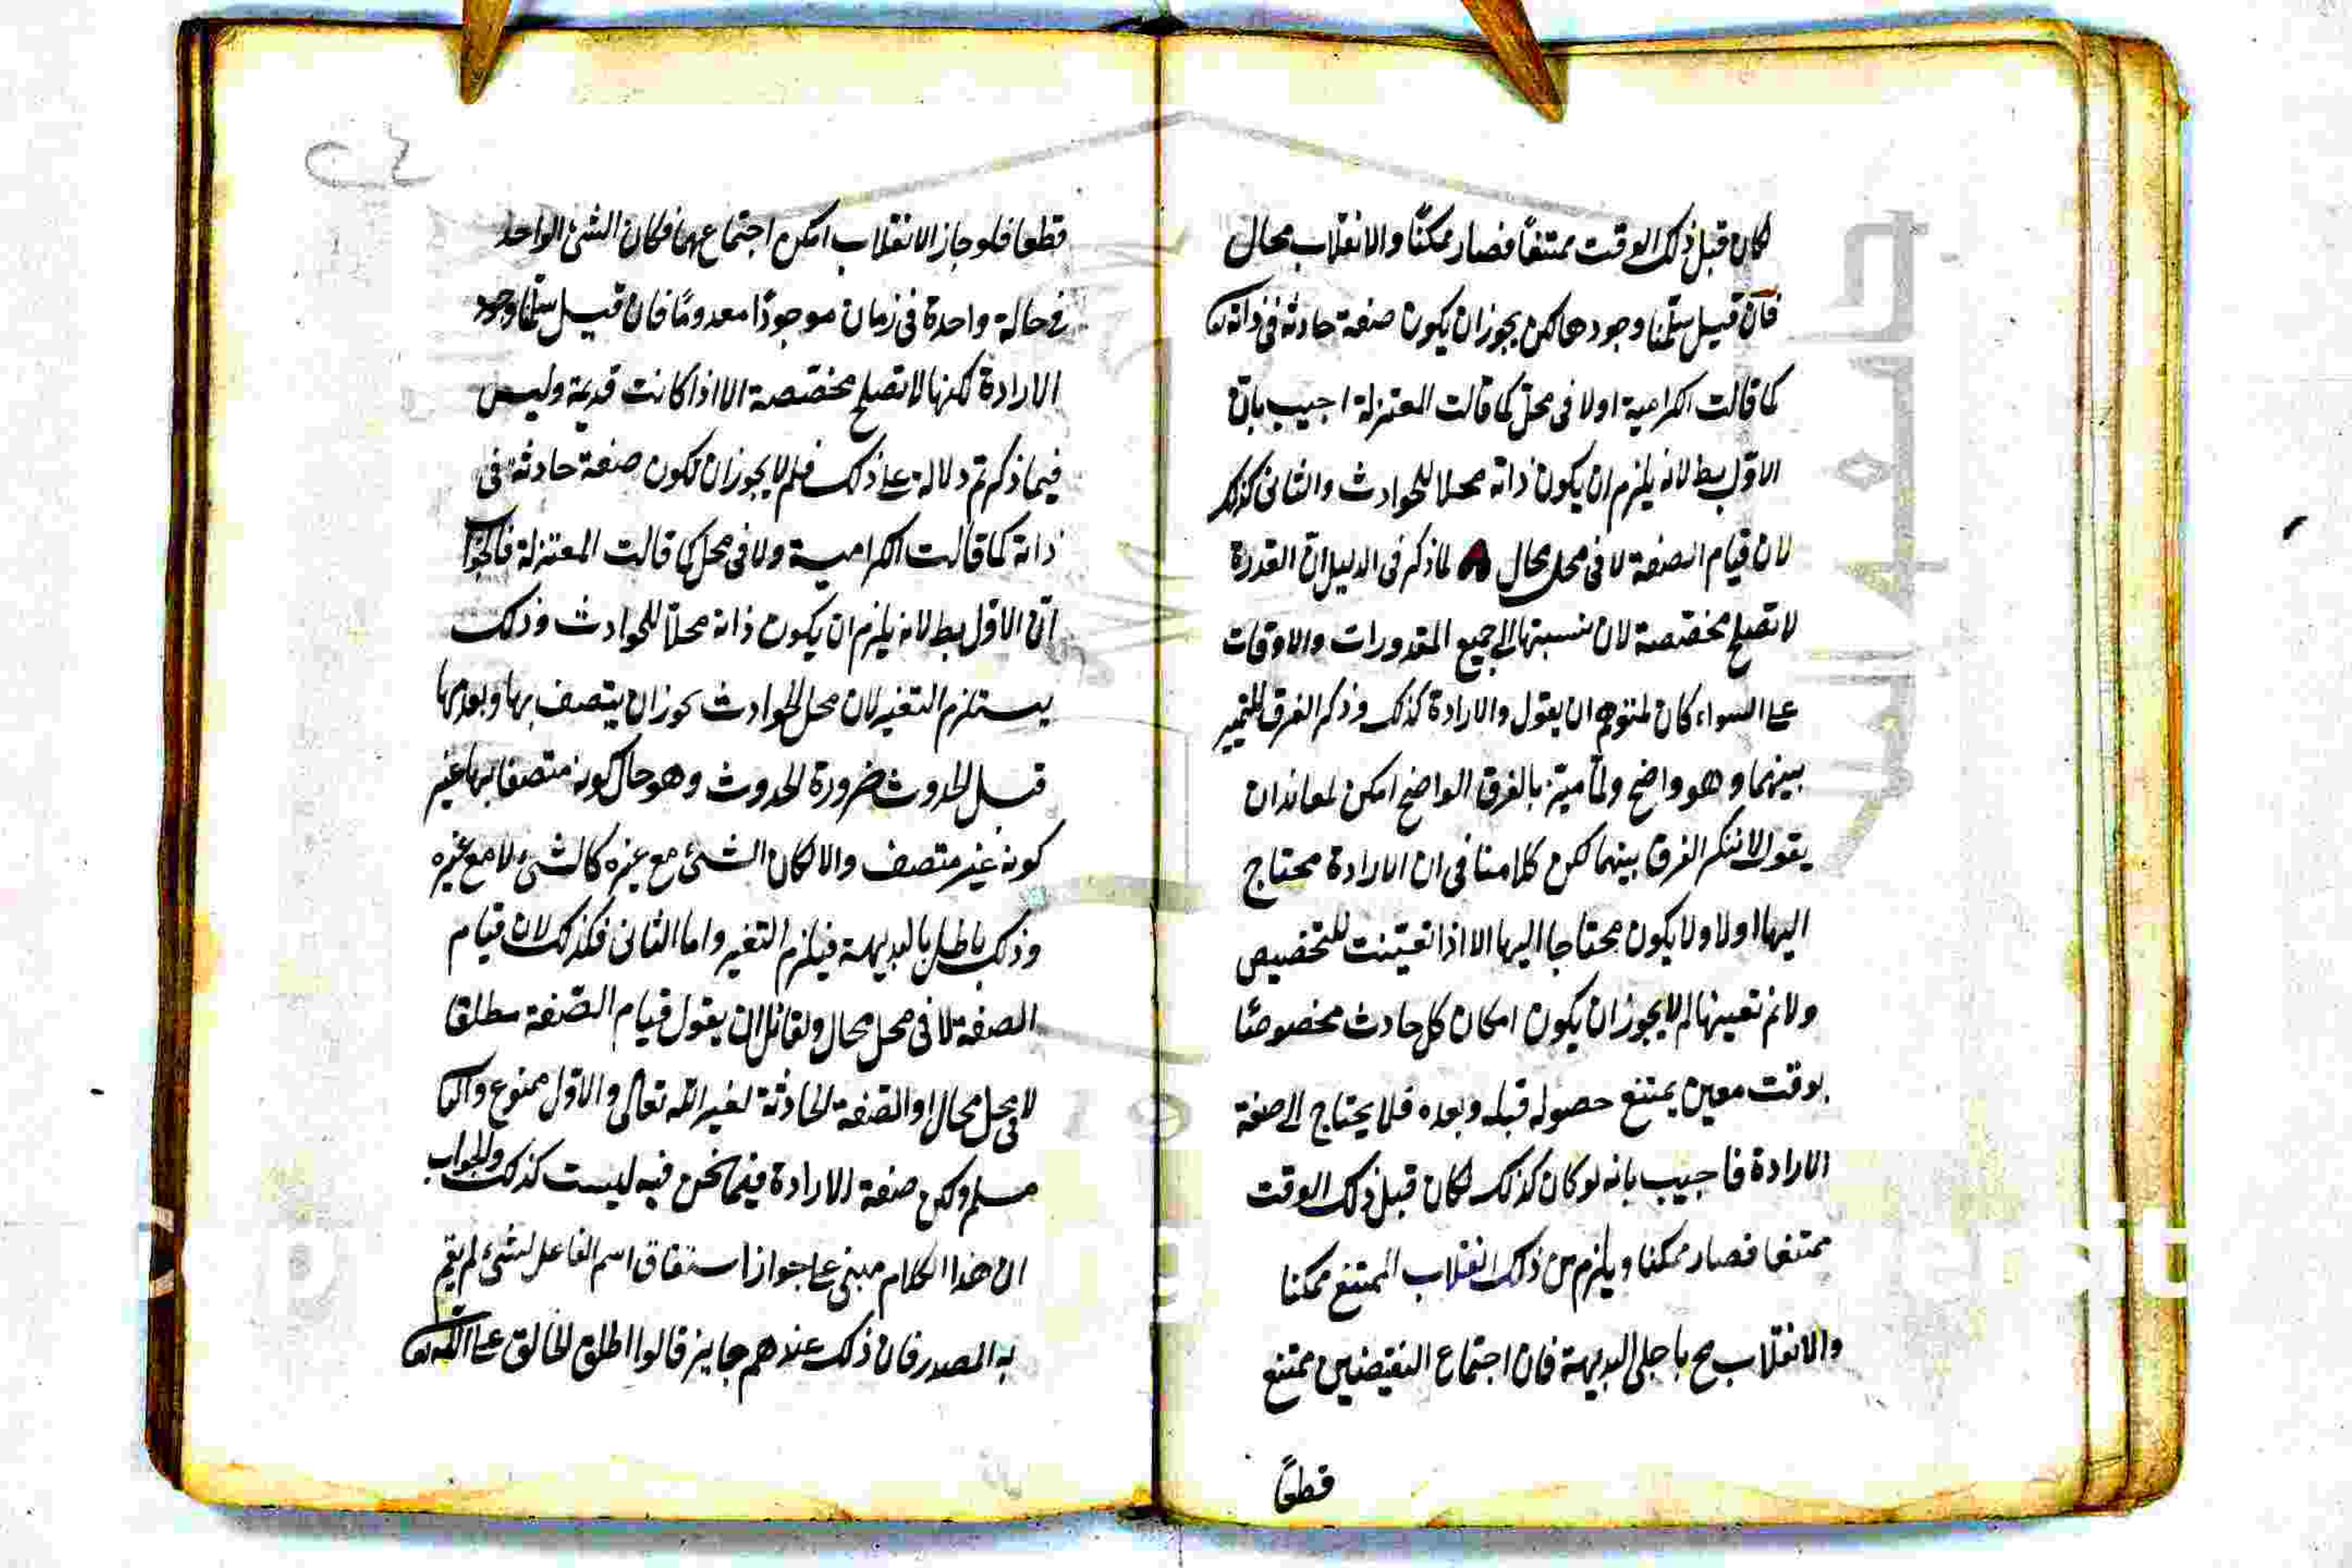 لكان قبل ذلك الوقت ممتنعاً فصار ممكنًا والانقلاب محال
فان قيل سلّمنا وجودها لكن يجوز ان يكون صفة حادثة فى ذاته تعا
كما قالت الكرامية اولا فى محلّ كما قالت المعتزلة اجيب بانّ
الاوّل بط لانه يلزم ان يكون ذاته محلا للحوادث والثانى كذلك
لان قيام الصفة لا فى محل محال لما ذكر فى الدليل انّ القدرة
لا تصلح مخصّصة لان نسبتها الى جميع المقدورات والاوقات
على السواء كان لمتوهم ان يقول والارادة كذلك وذكر الفرق للتمييز
بينهما وهو واضح ولمّا ميّز بالفرق الواضح امكن لمعاند ان
يقول لا ننكر الفرق بينهما لكن كلامنا فى ان الارادة محتاج
اليها اولا ولا يكون محتاجا اليها الا اذا تعيّنت للتخصيص
ولا نم تعينها لم لا يجوز ان يكون امكان كل حادث مخصوصًا
بوقت معين يمتنع حصوله قبله وبعده فلا يحتاج الى صفة
الارادة فاجيب بانه لو كان كذلك لكان قبل ذلك الوقت
ممتنعا فصار ممكنا ويلزم من ذلك انقلاب الممتنع ممكنا
والانقلاب مح باجلى البديهة فان اجتماع النقيضين ممتنع
قطعاً
قطعا فلو جاز الانقلاب امكن اجتماعهما فكان الشئ الواحد
فى حالة واحدة فى زمان موجودًا معدومًا فان قيل سلّمنا وجود
الارادة لكنها لا تصلح مخصّصة الا اذا كانت قديمة وليس
فيما ذكرتم دلالة على ذلك فلم لا يجوز ان تكون صفة حادثة فى
ذاته كما قالت الكرامية ولا فى محل كما قالت المعتزلة فالجواب
انّ الاوّل بط لانه يلزم ان يكون ذاته محلاّ للحوادث وذلك
يستلزم التغير لان محل الحوادث يجوز ان يتصف بها وبعدمها
قبل الحدوث ضرورة الحدوث وهو حال كونه متصفا بها غير
كونه غير متصف والا لكان الشئ مع غيره كالشئ لا مع غيره
وذلك باطل بالبديهة فيلزم التغير واما الثانى فكذلك لان قيام
الصفة لا فى محل محال ولقائل ان يقول قيام الصّفة مطلقا
لا فى محل محال او الصّفة الحادثة لغير الله تعالى والاوّل ممنوع والثا
مسلم ولكن صفة الارادة فيما نحن فيه ليست كذلك والجواب
ان هذا الكلام مبنى على جواز اشتقاق اسم الفاعل لشئ لم يقم
به المصدر فان ذلك عندهم جايز قالوا اطلق الخالق على الله تعا